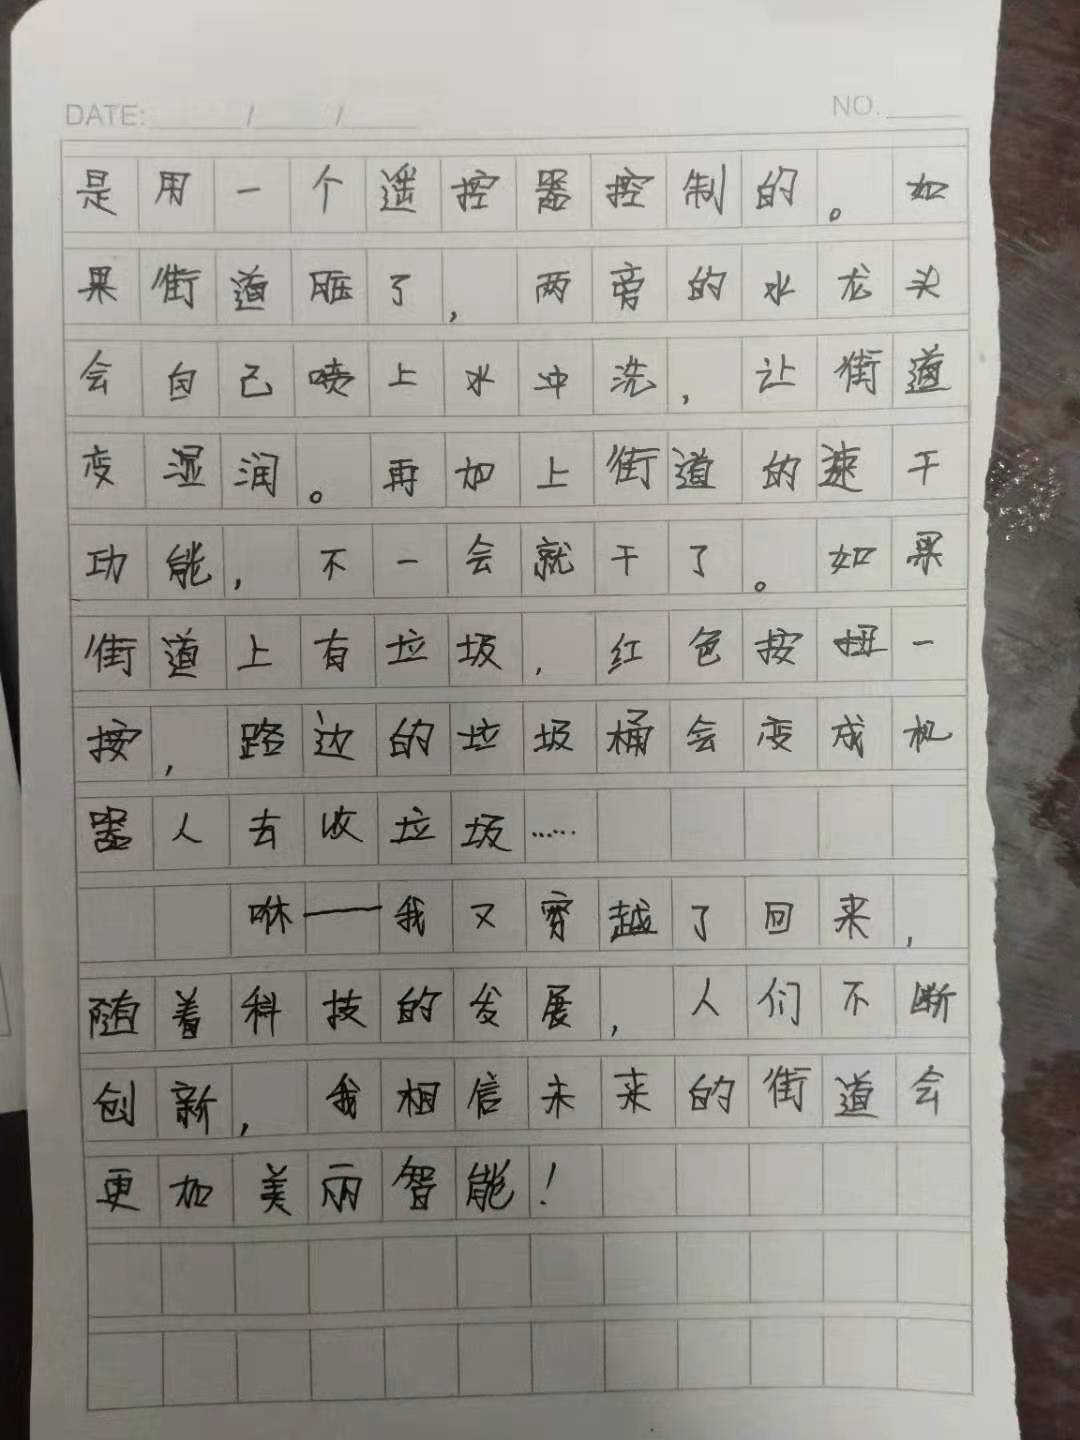 DATE: ______/_____/_____ NO._____
是用一个遥控器控制的。如
果街道脏了，两旁的水龙头
会自己喷上水冲洗，让街道
变湿润。再加上街道的速干
功能，不一会就干了。如果
街道上有垃圾，红色按扭一
按，路边的垃圾桶会变成机
器人去收垃圾……
咻——我又穿越了回来，
随着科技的发展，人们不断
创新，我相信未来的街道会
更加美丽智能！